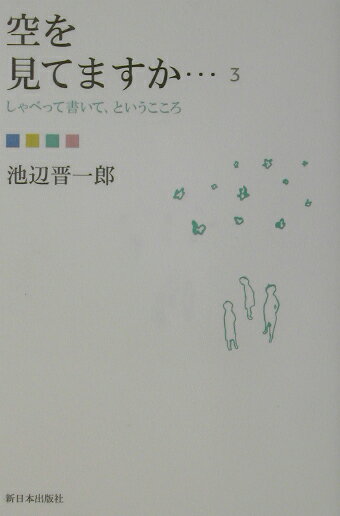 空を
見てますか… 3
しゃべって書いて、というこころ
池辺晋一郎
新日本出版社